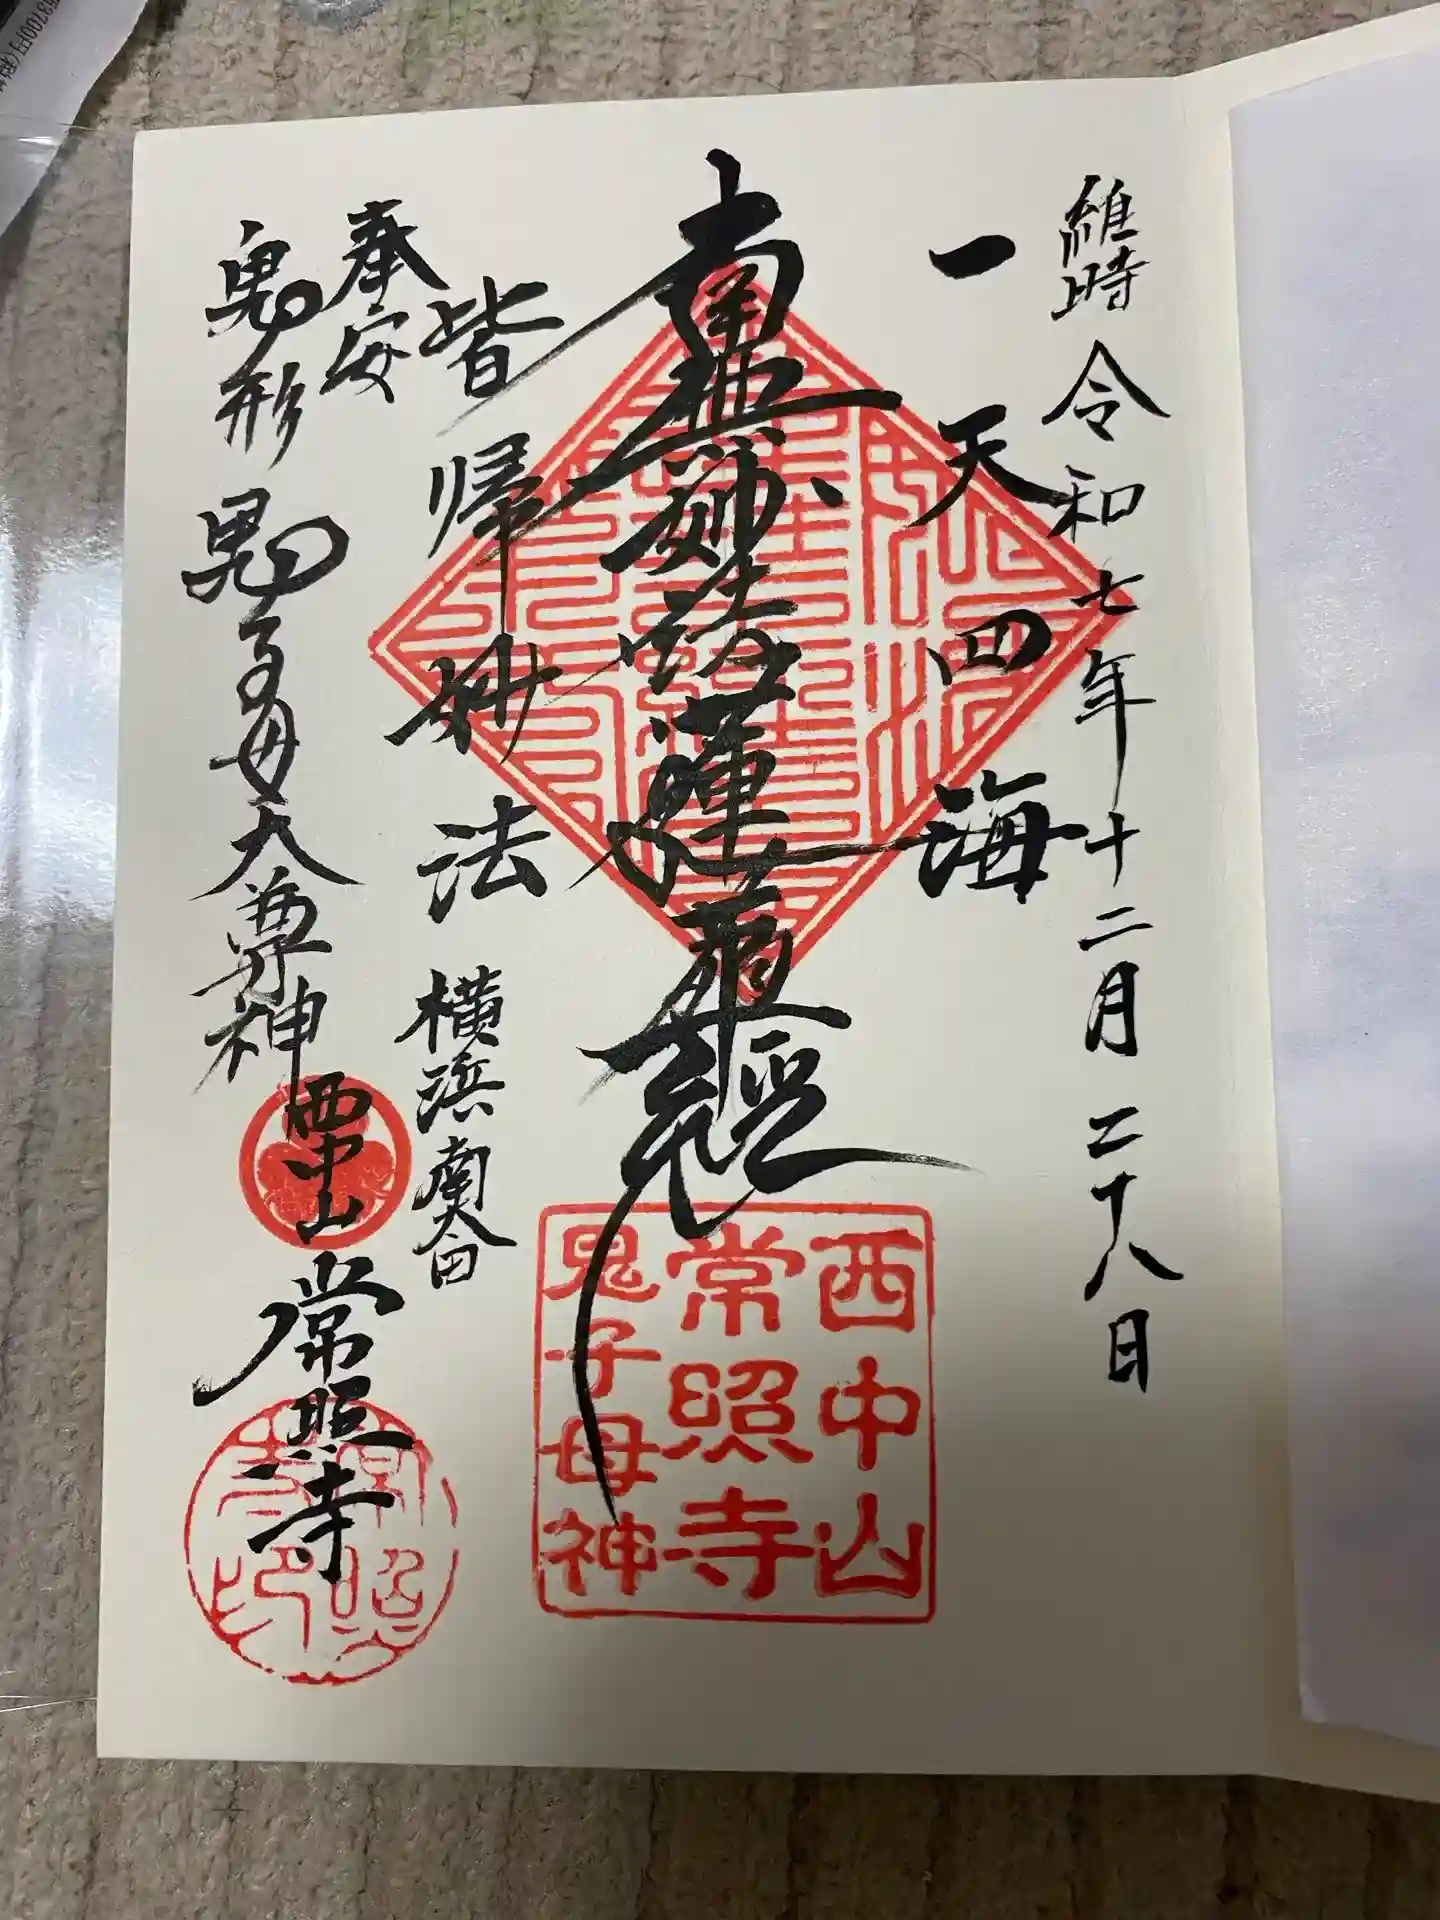 維時 令和七年十二月二十八日
一天四海
南無妙法蓮華経
皆帰妙法
横浜南太田
奉安
鬼形鬼子母大尊神
西中山 常照寺
西中山
常照寺
鬼子母神
常照寺印